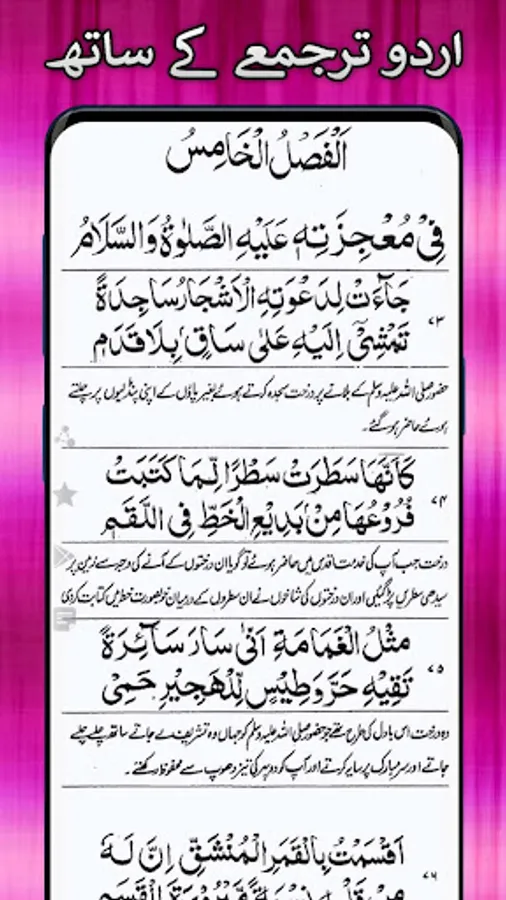 اردو ترجمعے کے ساتھ
اَلْفَصْلُ الْخَامِسُ
فِیْ مُعْجِزَتِهٖ عَلَیْهِ الصَّلٰوةُ وَالسَّلَامُ
جَآءَتْ لِدَعْوَتِهِ الْاَشْجَارُ سَاجِدَةً
۷۳
تَمْشِیْٓ اِلَیْهِ عَلٰی سَاقٍ بِلَا قَدَمٖ
حضور صلی اللہ علیہ وسلم کے بلانے پر درخت سجدہ کرتے ہوئے بغیر پاؤں کے اپنی پنڈلیوں پر چلتے
ہوئے حاضر ہو گئے۔
كَاَنَّهَا سَطَرَتْ سَطْرًا لِّمَا كَتَبَتْ
۷۴
فُرُوْعُهَا مِنْ بَدِیْعِ الْخَطِّ فِی اللَّقَمٖ
درخت جب آپ کی خدمت اقدس میں حاضر ہوئے تو گویا ان درختوں کے آنے کی وجہ سے زمین پر
سیدھی سطریں پڑ گئیں اور ان درختوں کی شاخوں نے ان سطروں کے درمیان خوبصورت خط میں کتابت کر دی
مِثْلُ الْغَمَامَةِ اَنّٰی سَارَ سَآئِرَةً
۷۵
تَقِیْهِ حَرَّ وَطِیْسٍ لِّلْهَجِیْرِ حَمِیْ
وہ درخت اس بادل کی طرح تھے جو حضور صلی اللہ علیہ وسلم کو جہاں وہ تشریف لے جاتے ساتھ چلے چلے
جاتے اور سر مبارک پر سایہ کرتے اور آپ کو دوپہر کی تیز دھوپ سے محفوظ رکھتے۔
اَقْسَمْتُ بِالْقَمَرِ الْمُنْشَقِّ اِنَّ لَهٗ
۷۶
مِنْ قَلْبِهٖ نِسْبَةً مَّبْرُوْرَةَ الْقَسَمٖ